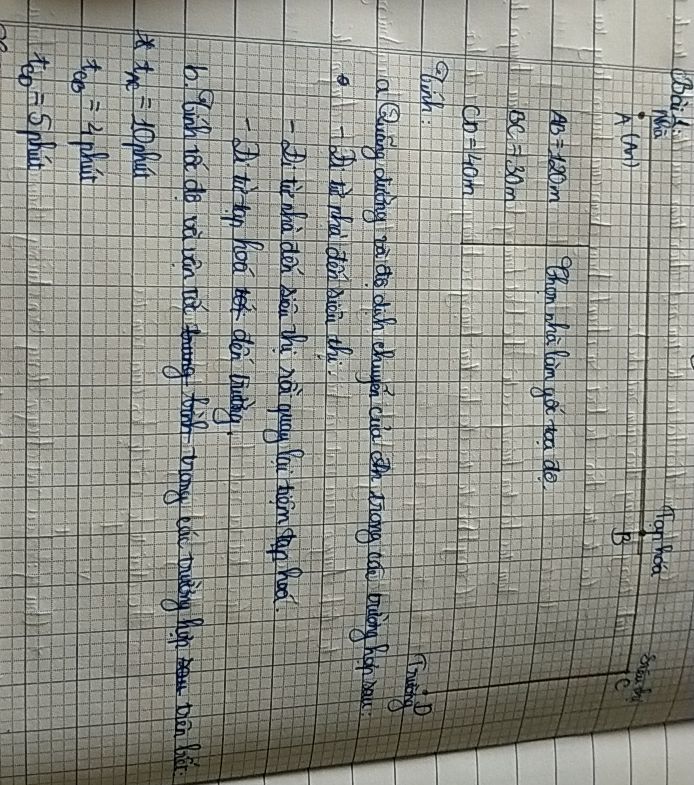 Bài 1:
Nhà Tạp hóa Siêu thị
A (An) B C
AB = 120m Chọn nhà làm gốc tọa độ
BC = 30m
CD = 40m
D
Trường
Tính:
a. Quãng đường và độ dịch chuyển của An trong các trường hợp sau:
- Đi từ nhà đến siêu thị.
- Đi từ nhà đến siêu thị rồi quay lại tiệm tạp hoá.
- Đi từ tạp hoá đến trường.
b. Tính tốc độ và vận tốc trung bình trong các trường hợp sau trên biết:
* tAC = 10 phút
tCB = 4 phút
tCD = 5 phút